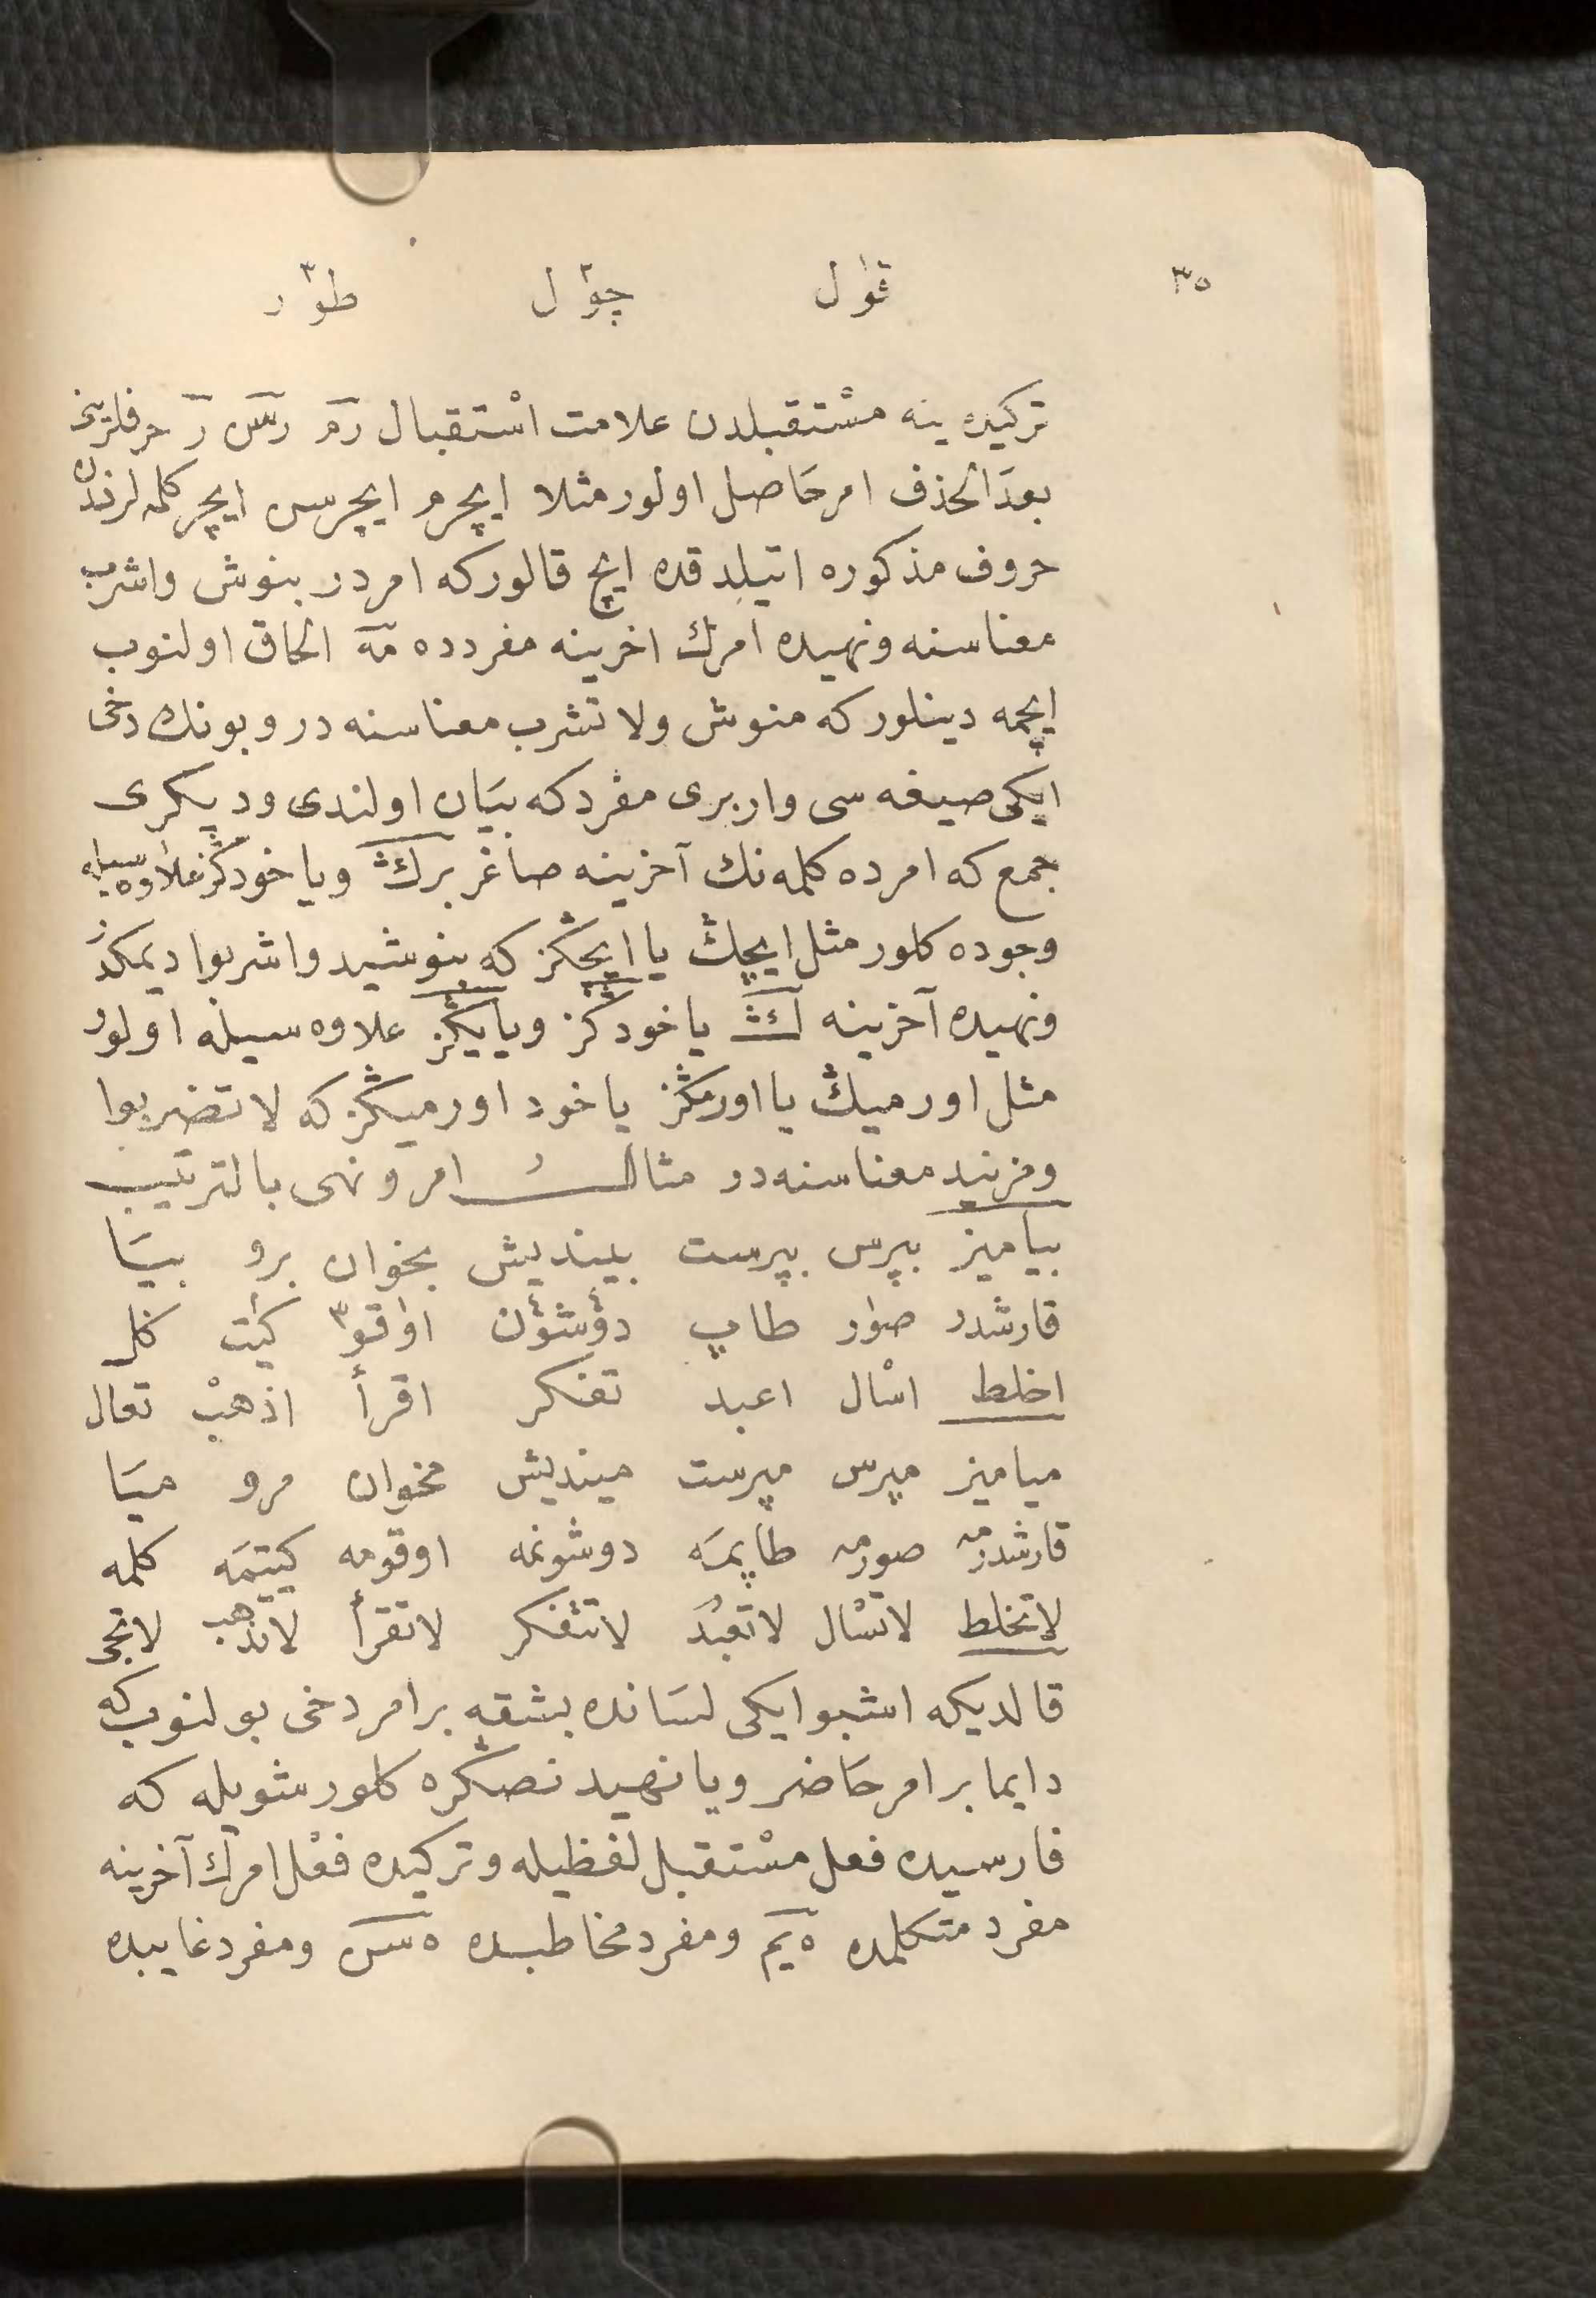 ٣٥ قول چول طور
تركیده ینه مسْتقبلدن علامت اسْتقبال رم رس ر حرفلرینی
بعدَ الحذف امر حَاصل اولور مثلا ایچرم ایچرسن ایچر كلمه لرندن
حروف مذكوره اتیلدقده ایچ قالور كه امر در بنوش واشرب
معناسنه ونهیده امرك اخرینه مفردده مه الحاق اولنوب
ایچمه دینلور كه منوش ولا تشرب معناسنه در وبونك دخی
ایكی صیغه سی وار بری مفرد كه بیَان اولندی ودیكری
جمع كه امرده كلمه نك آخرینه صاغر بر ڭ ویاخود ڭز علاوه سیله
وجوده كلور مثل ایچیڭ یا ایچڭز كه بنوشید واشربوا دیمكدر
ونهیده آخرینه ڭ یاخود ڭز ویا یڭز علاوه سیله اولور
مثل اورمیڭ یا اورمڭز یاخود اورمیڭز كه لا تضربوا
ومزنید معناسنه در مثال امر ونهی بالترتیب
بیامیز بپرس بپرست بیندیش بخوان برو بیَا
قارشدر صور طاپ دوشون اوقو كیت كل
اخلط اسْال اعبد تفكر اقرأ اذهبْ تعال
میامیز مپرس مپرست میندیش مخوان مرو میَا
قارشدرمه صورمه طاپمَه دوشونمه اوقومه كیتمَه كلمه
لاتخلط لاتسْال لاتعبُد لاتتفكر لاتقرأ لاتذهب لاتجی
قالدیكه اشبو ایكی لسَانده بشقه بر امر دخی بولنوب كه
دایما بر امر حَاضر ویا نهیدنصڭره كلور شویله كه
فارسیده فعل مسْتقبل لفظیله وتركیده فعْل امرك آخرینه
مفرد متكلمده ه یم ومفرد مخاطبده ه سن ومفرد غایبده